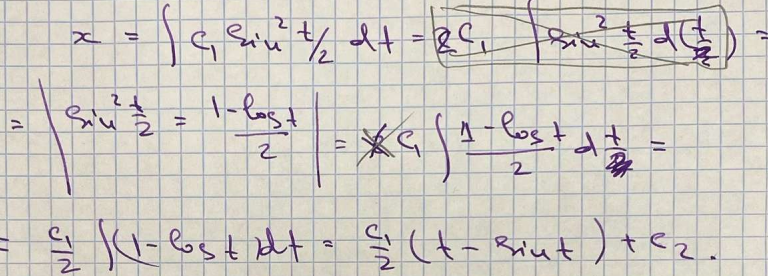 x = ∫ C₁ sin² t/2 dt = 2C₁ ∫ sin² t/2 d(t/2) =
= | sin² t/2 = (1 - cos t)/2 | = C₁ ∫ (1 - cos t)/2 dt =
= C₁/2 ∫(1 - cos t)dt = C₁/2 (t - sin t) + C₂.